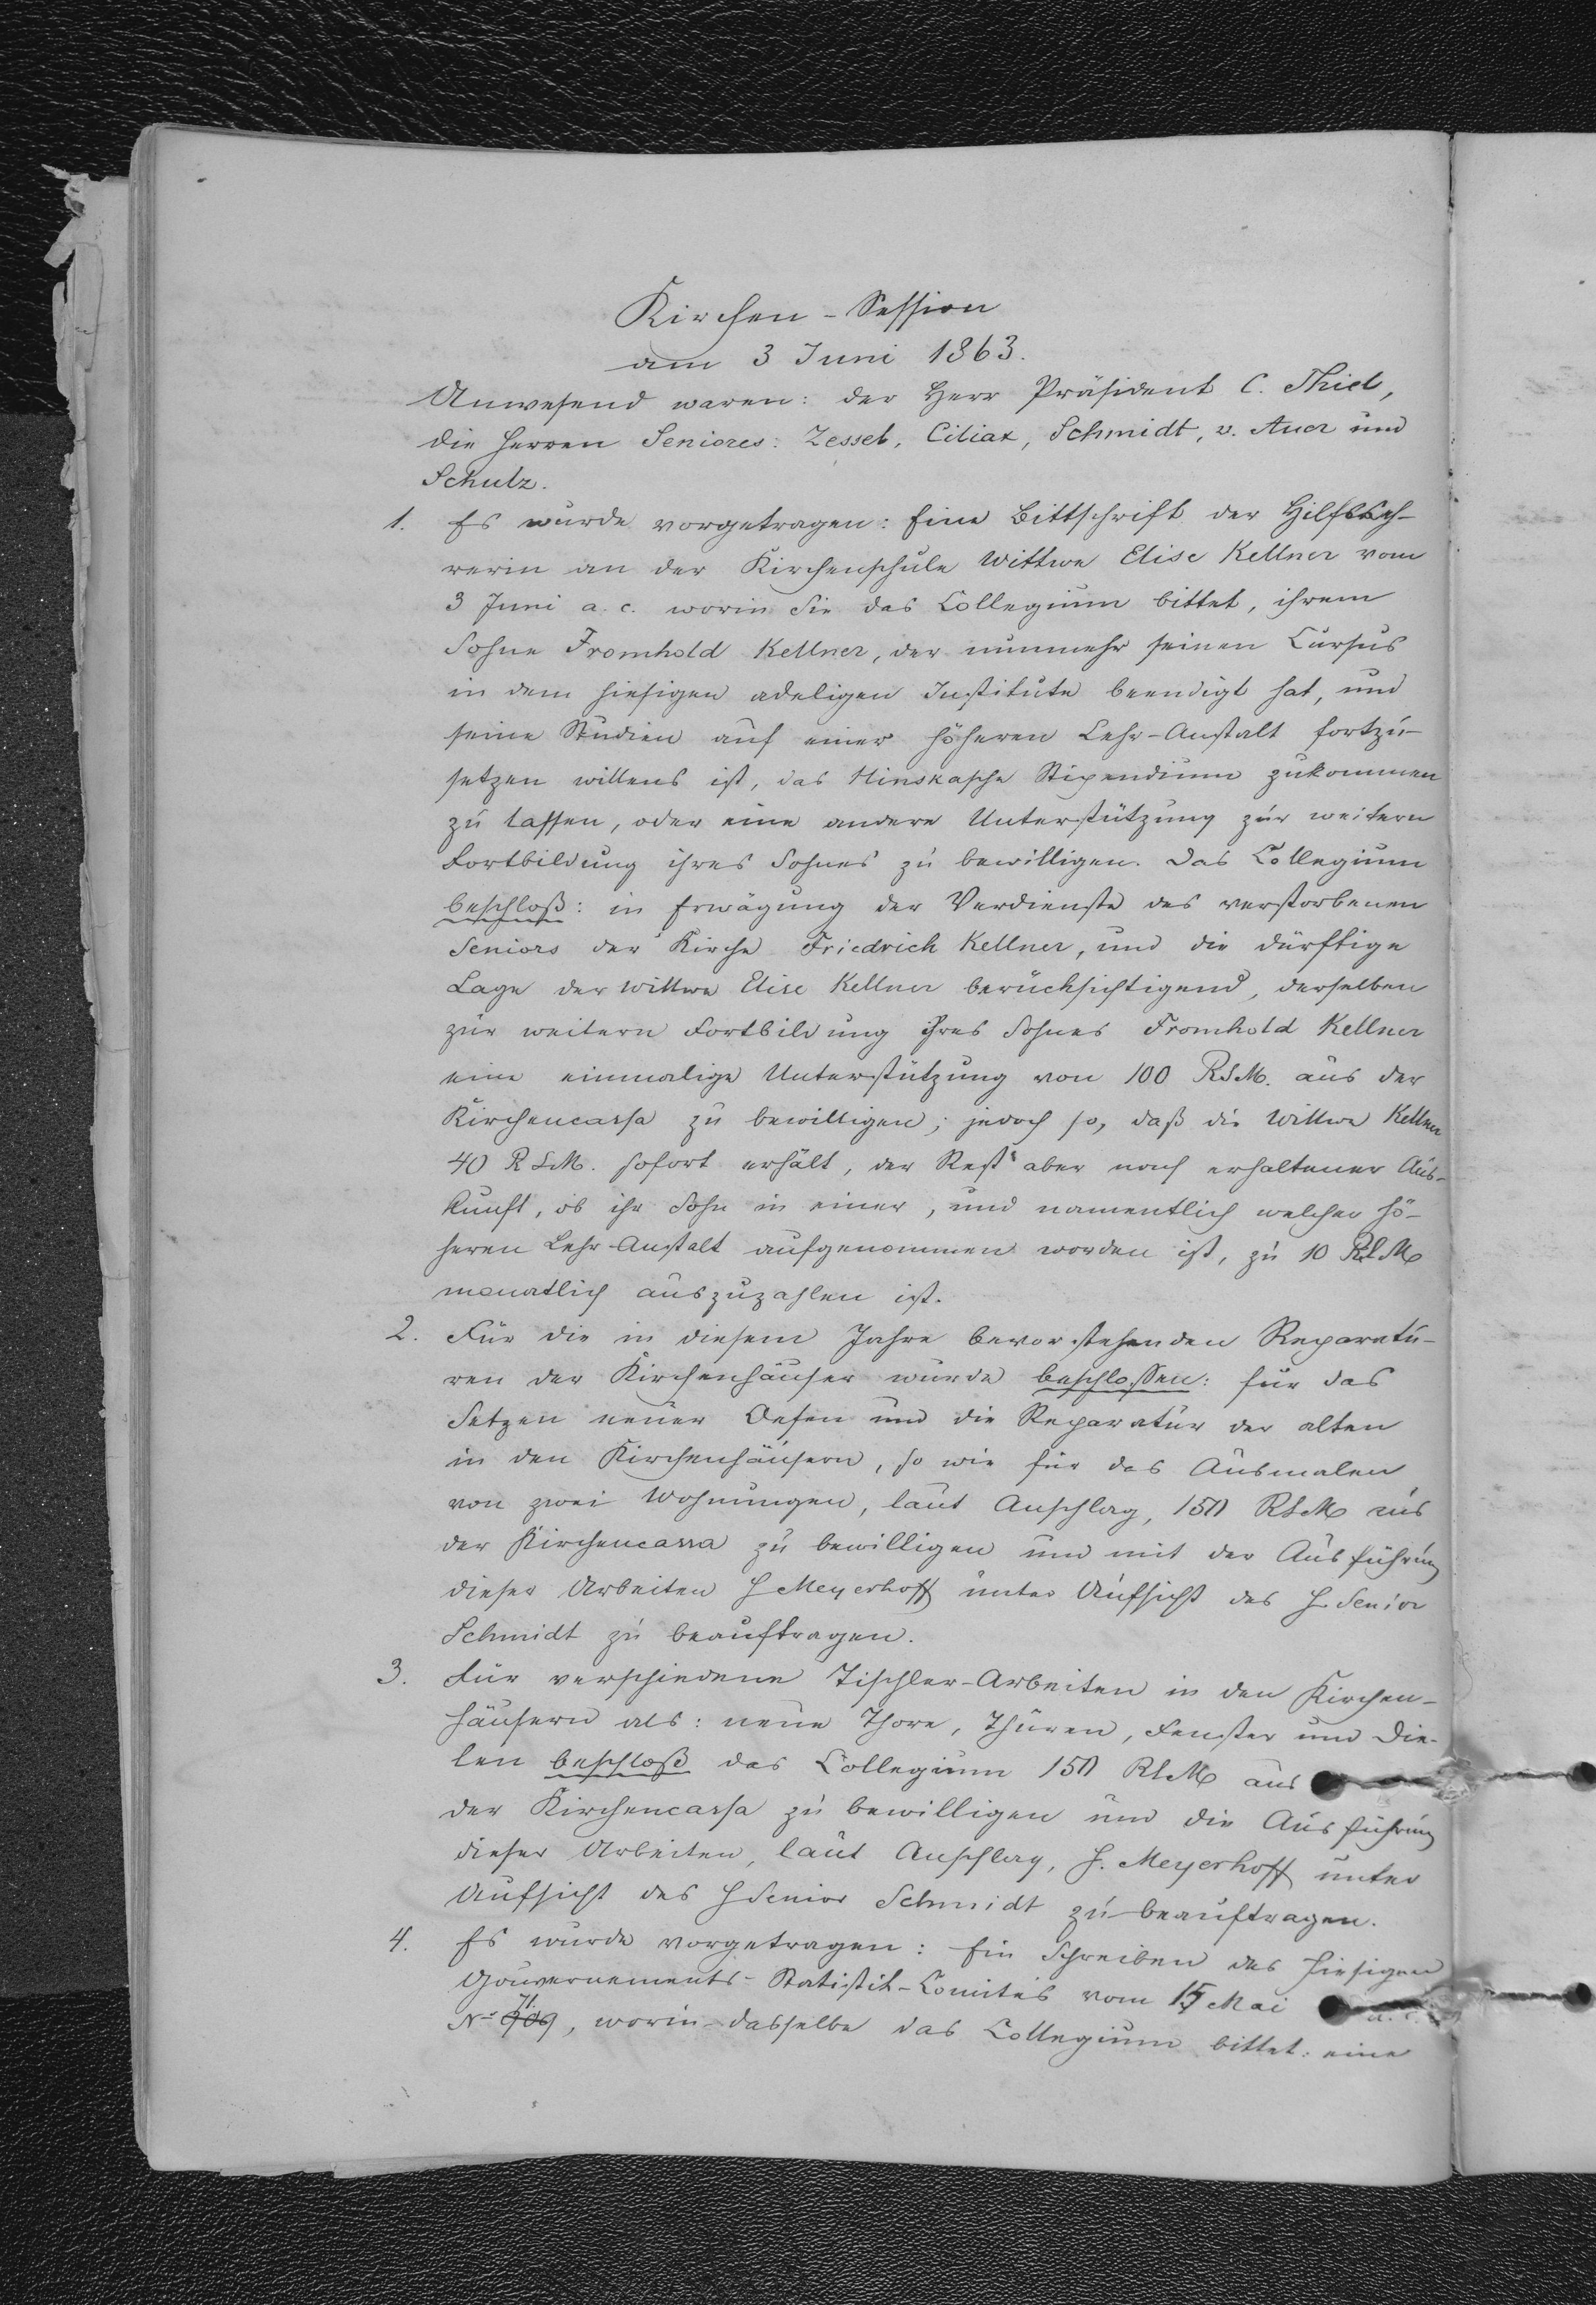 Kirchen-Session
am 3 Juni 1863.
Anwesend waren: der Herr Präsident C. Thiel,
die Herren Seniores: Zessel, Ciliax, Schmidt, v. Auer und
Schulz.
1. Es wurde vorgetragen: Eine Bittschrift der Hilfsleh-
rerin an der Kirchenschule Wittwe Elise Kellner vom
3 Juni a. c. worin Sie das Collegium bittet, ihrem
Sohne Fromhold Kellner, der nunmehr seinen Cursus
in dem hiesigen adeligen Institute beendigt hat, und
seine Studien auf einer höheren Lehr-Anstalt fortzu-
setzen willens ist, das Minskasche Stipendium zukommen
zu lassen, oder eine andere Unterstützung zur weitern
Fortbildung ihres Sohnes zu bewilligen. Das Collegium
beschloß: in Erwägung der Verdienste des verstorbenen
Seniors der Kirche Friedrich Kellner, und die dürftige
Lage der Wittwe Elise Kellner berücksichtigend, derselben
zur weitern Fortbildung ihres Sohnes Fromhold Kellner
eine einmalige Unterstützung von 100 RSM. aus der
Kirchencassa zu bewilligen; jedoch so, daß die Wittwe Kellner
40 RSM. sofort erhält, der Rest aber nach erhaltener Aus-
kunft, ob ihr Sohn in einer, und namentlich welcher hö-
heren Lehr-Anstalt aufgenommen worden ist, zu 10 RSM
monatlich auszuzahlen ist.
2. Für die in diesem Jahre bevorstehenden Reparatu-
ren der Kirchenhäuser wurde beschlossen: für das
Setzen neuer Oefen und die Reparatur der alten
in den Kirchenhäusern, so wie für das Ausmalen
von zwei Wohnungen, laut Anschlag, 150 RSM aus
der Kirchencassa zu bewilligen und mit der Ausführung
dieser Arbeiten H Meyerhoff unter Aufsicht des H. Senior
Schmidt zu beauftragen.
3. Für verschiedene Tischler-Arbeiten in den Kirchen-
häusern als: neue Thore, Thüren, Fenster und Die-
len beschloß das Collegium 150 RSM aus
der Kirchencassa zu bewilligen und die Ausführung
dieser Arbeiten, laut Anschlag, H. Meyerhoff unter
Aufsicht des H Senior Schmidt zu beauftragen.
4. Es wurde vorgetragen: Ein Schreiben des hiesigen
Gouvernements-Statistik-Comités vom 15 Mai a. c.
№, worin dasselbe das Collegium bittet: eine